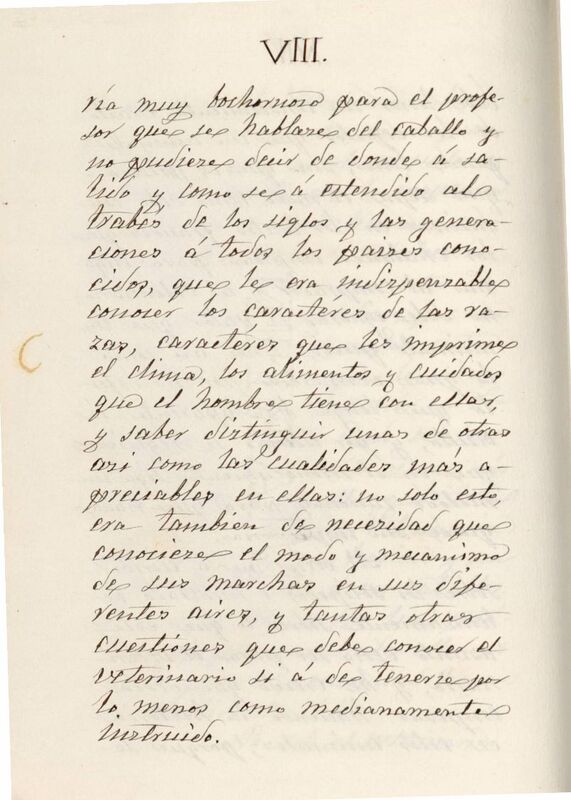 VIII.
ría muy bochornoso para el profe-
sor que se hablare del caballo y
no pudiere decir de donde á sa-
lido y como se á estendido al
trabés de los siglos y las genera-
ciones á todos los paises cono-
cidos, que le era indispensable
conocer los caractéres de las ra-
zas, caractéres que les imprime
el clima, los alimentos y cuidados
que el hombre tiene con ellas,
y saber distinguir unas de otras
asi como las cualidades más a-
preciables en ellas: no solo esto,
era tambien de necesidad que
conociere el modo y mecanimo
de sus marchas en sus dife-
rentes aires, y tantas otras
cuestiones que debe conocer el
veterinario si á de tenerse por
lo menos como medianamente
instruido.